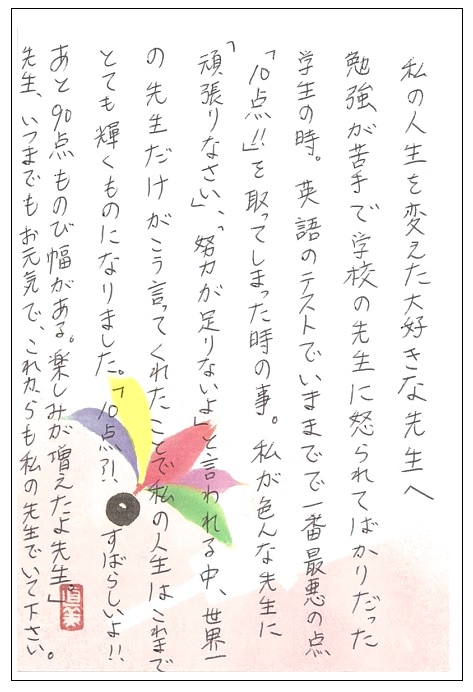 私の人生を変えた大好きな先生へ
勉強が苦手で学校の先生に怒られてばかりだった
学生の時。英語のテストでいままでで一番最悪の点
「10点!!」を取ってしまった時の事。私が色んな先生に
「頑張りなさい」、「努力が足りないよ」と言われる中、世界一
の先生だけがこう言ってくれたことで私の人生はこれまで
とても輝くものになりました。「10点?!、すばらしいよ!!
あと90点ものび幅がある。楽しみが増えたよ先生。」
先生、いつまでもお元気で、これからも私の先生でいて下さい。